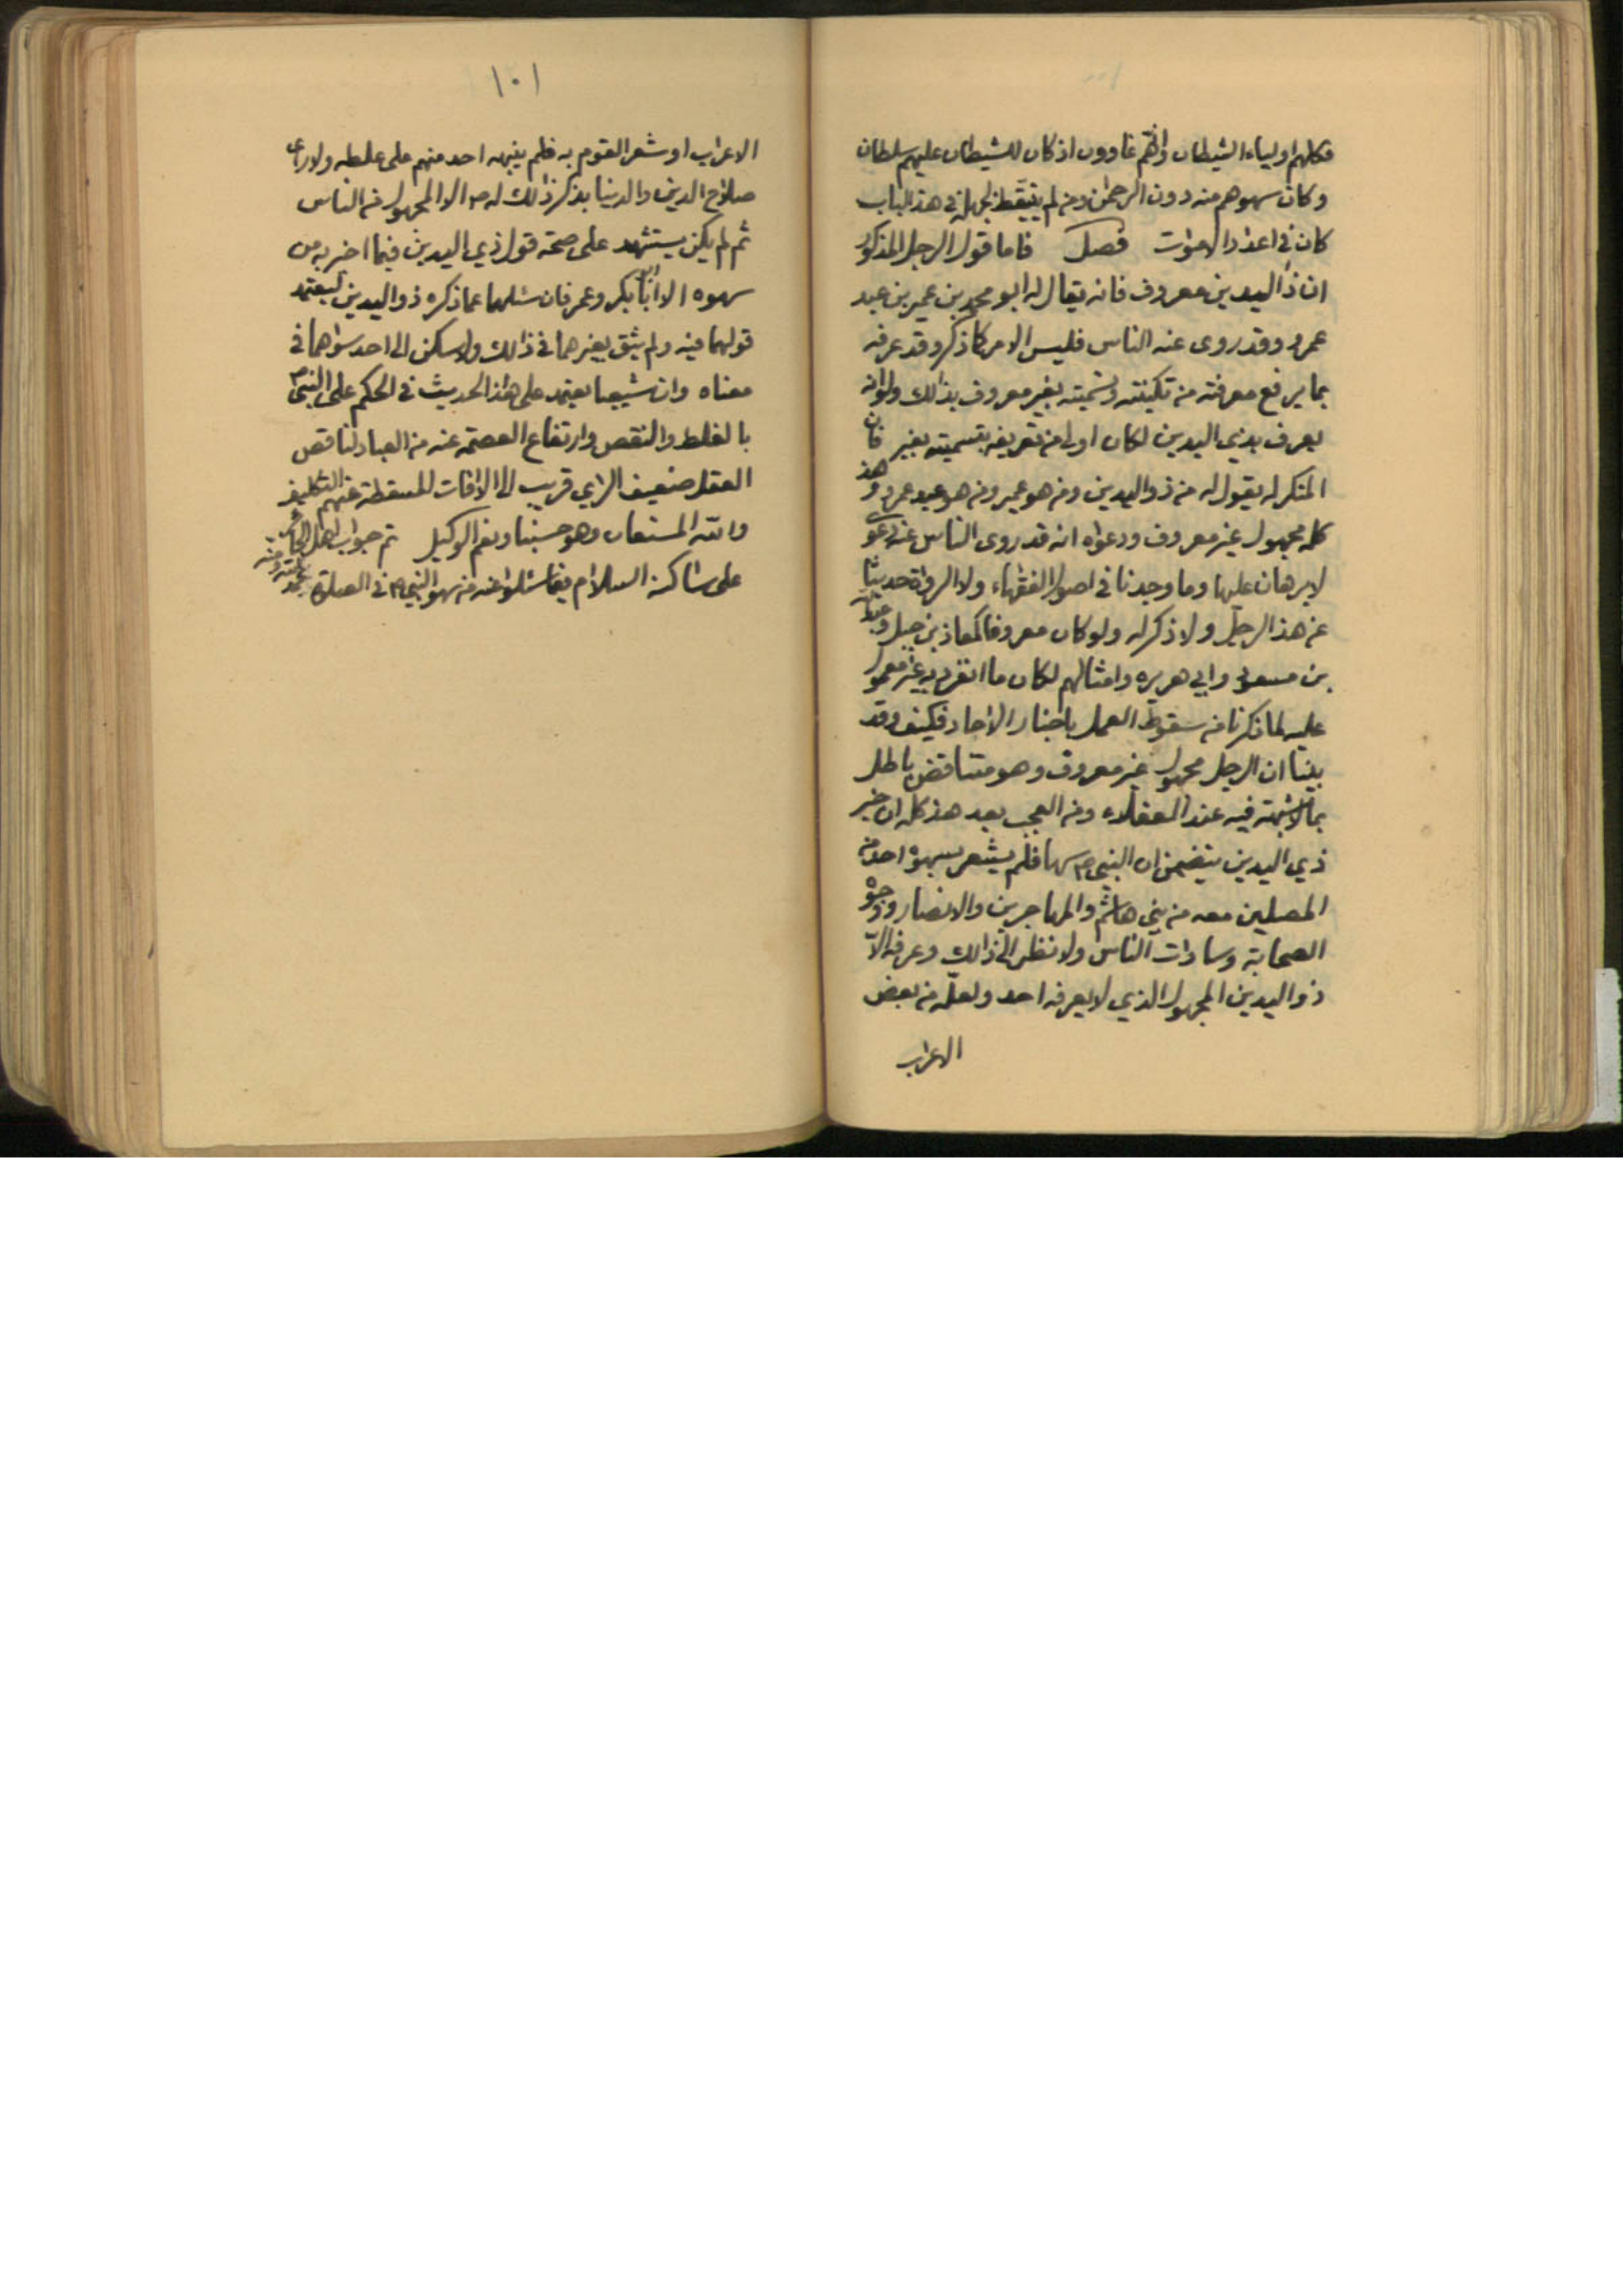 فكلهم اولياء الشيطان وانهم غاوون اذ كان للشيطان عليهم سلطان
وكان سهوهم منه دون الرحمن ومن لم يتيقظ لجهله في هذا الباب
كان في اعداد الاموات فصل فاما قول الرجل المذكور
ان ذا اليدين معروف فانه يقال له ابو محمد بن عمير بن عبد
عمرو وقد روى عنه الناس فليس الامر كما ذكر وقد عرفه
بما يرفع معرفته من تكنيته وتسميته بغير معروف بذلك ولو انه
يعرف بذي اليدين لكان اولى من تعريفه بتسميته بغير فان
المنكر له يقول له من ذو اليدين ومن هو عمير ومن هو عبد عمرو وهذا
كله مجهول غير معروف ودعواه انه قد روى الناس عنه دعوى
لا برهان عليها وما وجدنا في اصول الفقهاء ولا الرواة حديثا
عن هذا الرجل ولا ذكر له ولو كان معروفا كمعاذ بن جبل وعبد الله
بن مسعود وابي هريره وامثالهم لكان ما انفرد به غير معمول
عليه لما ذكرنا من سقوط العمل باخبار الاحاد فكيف وقد
بينا ان الرجل مجهول غير معروف وهو متناقض باطل
بما لا شبهة فيه عند العقلاء ومن العجب بعد هذا كله ان خبر
ذي اليدين يتضمن ان النبي ص سها فلم يشعر بسهوه احد من
المصلين معه من بني هاشم والمهاجرين والانصار ووجوه
الصحابة وسادات الناس ولا نظر الى ذالك وعرفه الا
ذو اليدين المجهول الذي لا يعرفه احد ولعله من بعض
الاعراب
١٠١
الاعراب او شعر القوم به فلم ينبهه احد منهم على غلطه ولا راى
صلاح الدين والدنيا بذكر ذالك له ص الا المجهول من الناس
ثم لم يكن يستشهد على صحة قول ذي اليدين فيما اخبر به من
سهوه الا ابا بكر وعمر فان سئلهما عما ذكره ذو اليدين ليعتمد
قولهما فيه ولم يثق بغيرهما في ذالك ولا سكن الى احد سواهما في
معناه وان شيعيا يعتمد على هذا الحديث في الحكم على النبي ص
بالغلط والنقص وارتفاع العصمة عنه من العباد لناقص
العقل ضعيف الراي قريب الى الافات المسقطة عنهم التكليف
والله المستعان وهو حسبنا ونعم الوكيل تم جواب اهل الحائر
على ساكنه السلام فيما سئلوا عنه من سهو النبي ص في الصلوة